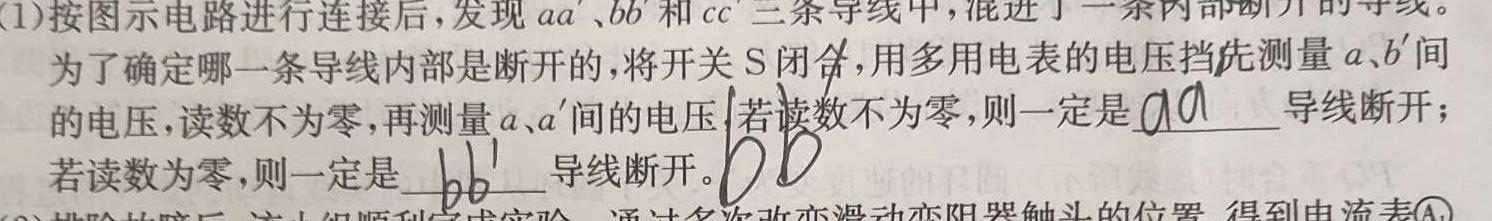 (1)按图示电路进行连接后,发现 aa′、bb′和 cc′三条导线中,混进了一条内部断开的导线。
为了确定哪一条导线内部是断开的,将开关 S 闭合,用多用电表的电压挡先测量 a、b′间
的电压,读数不为零,再测量 a、a′间的电压,若读数不为零,则一定是 aa 导线断开;
若读数为零,则一定是 bb' 导线断开。 bb
(2)排除故障后,该小组顺利完成实验。通过多次改变滑动变阻器触头的位置,得到电流表Ⓐ